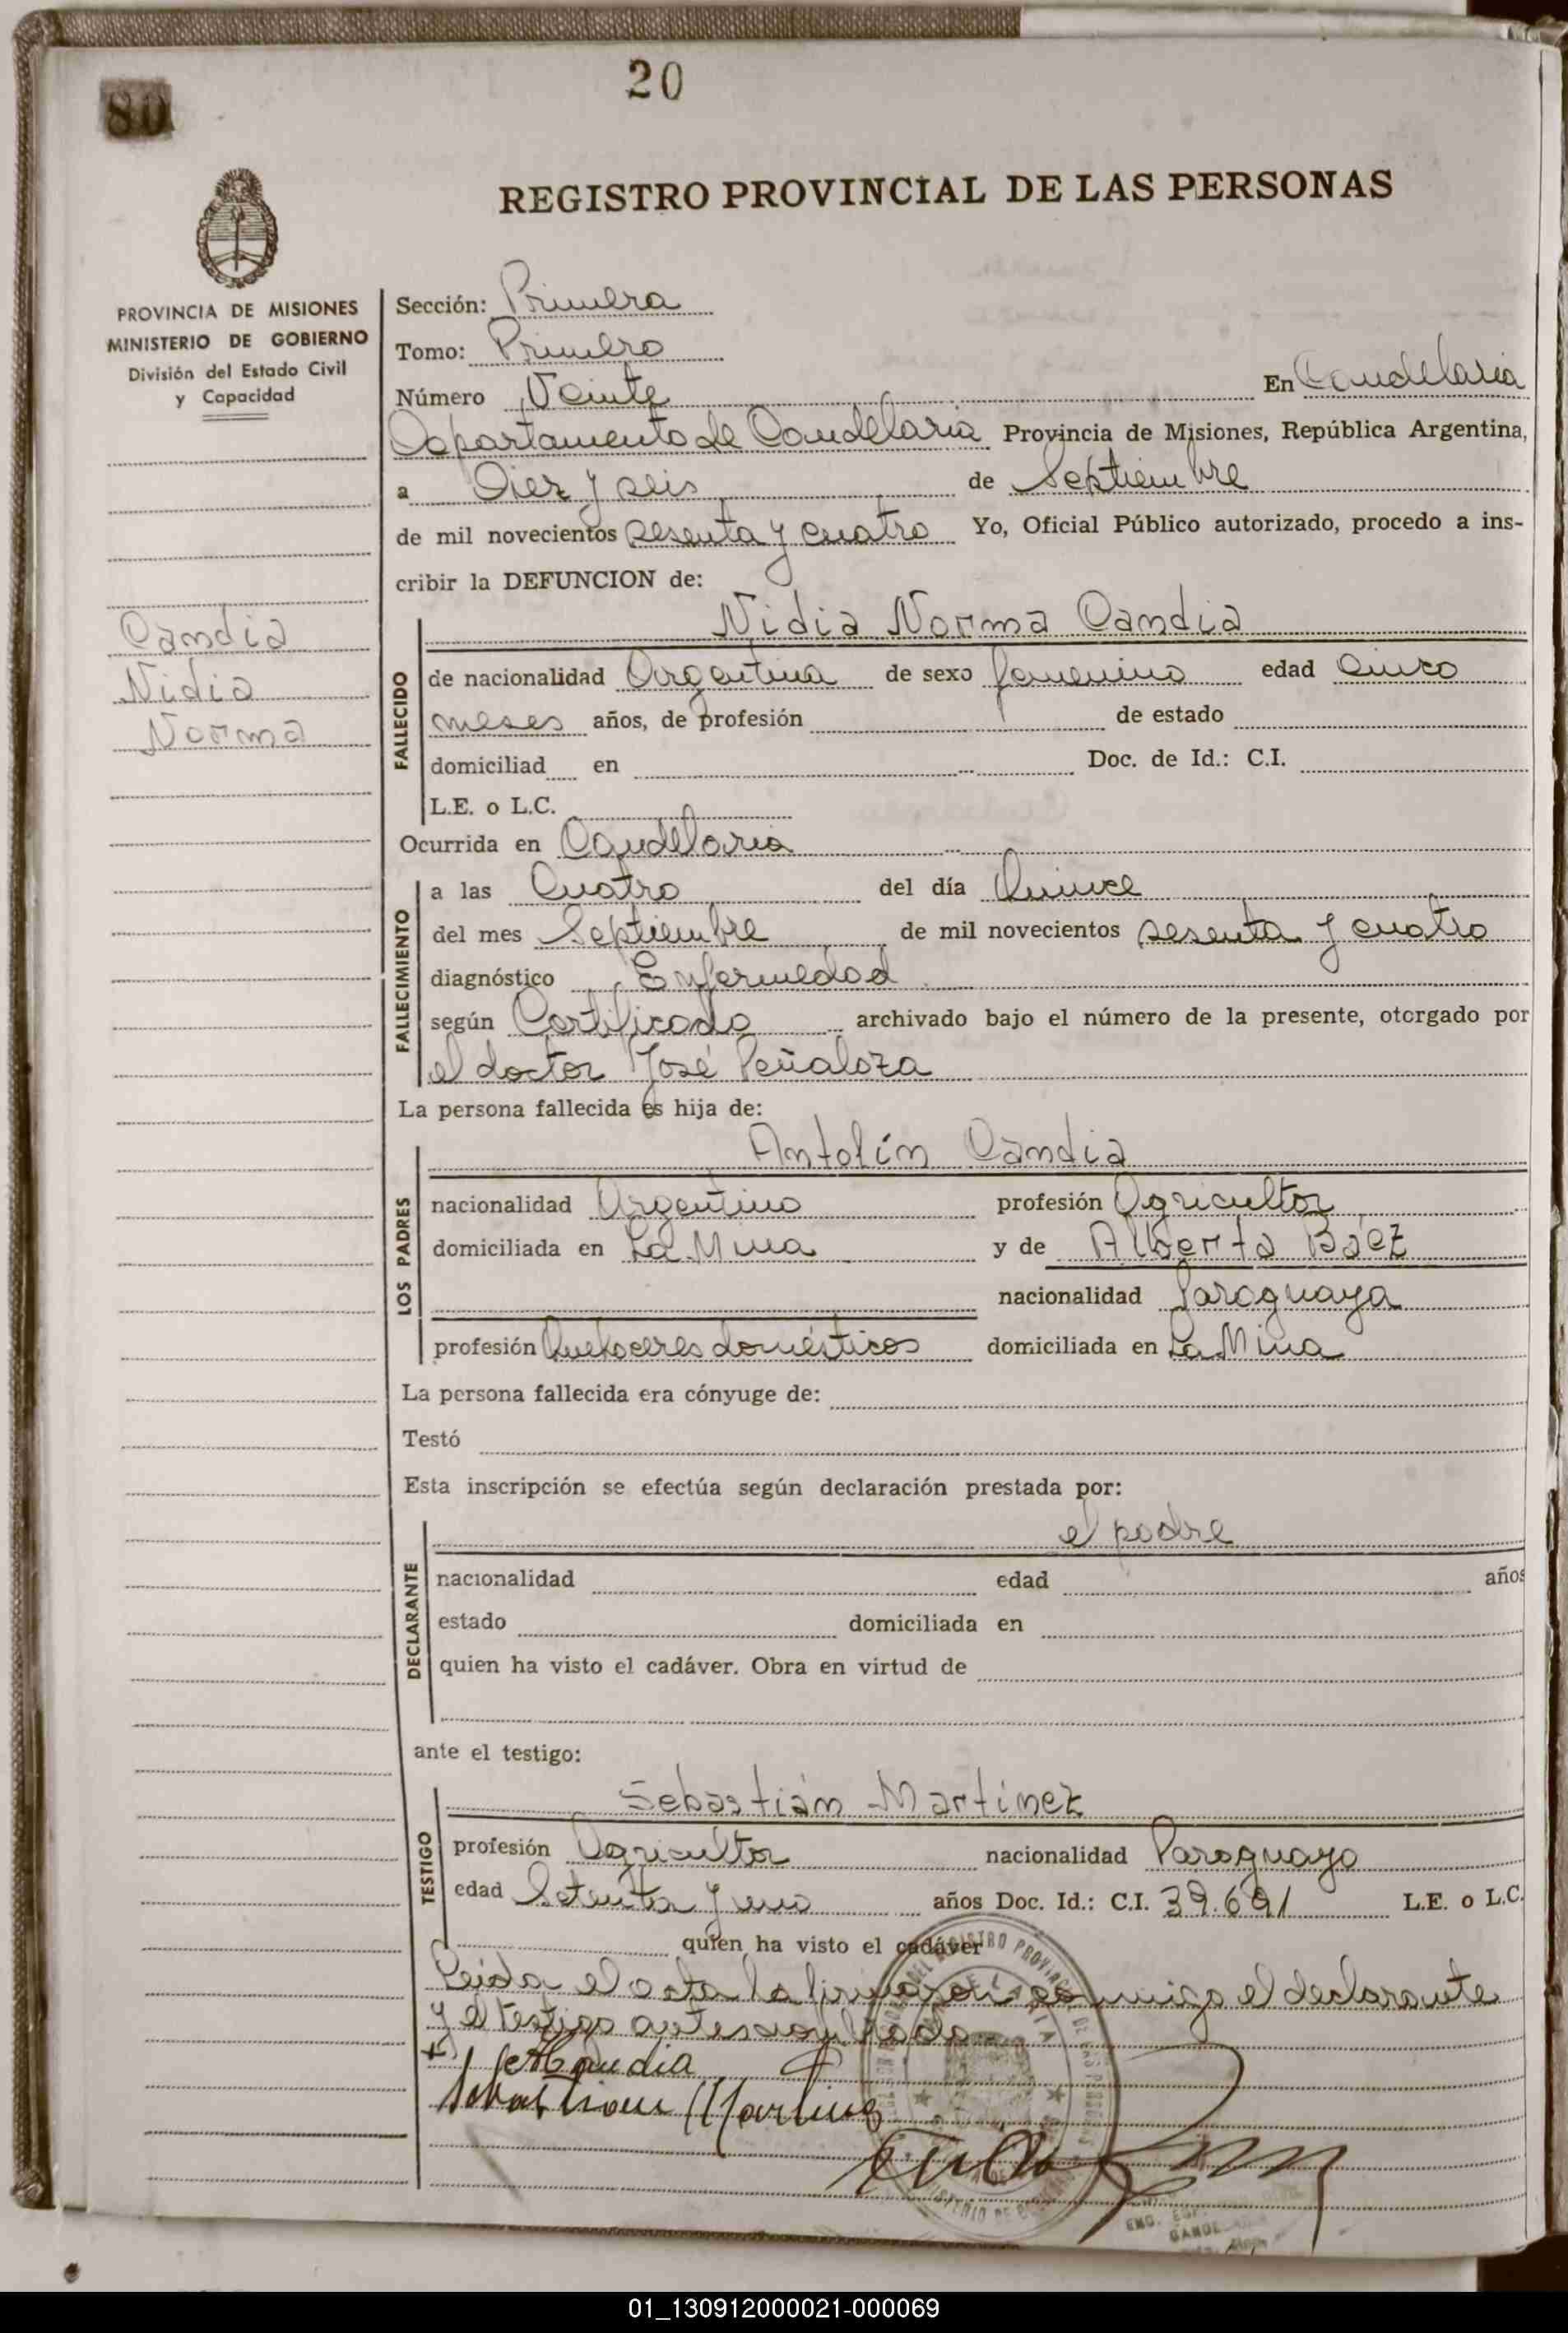 80
20
REGISTRO PROVINCIAL DE LAS PERSONAS
PROVINCIA DE MISIONES
MINISTERIO DE GOBIERNO
División del Estado Civil
y Capacidad
Candia
Nidia
Norma
Sección: Primera
Tomo: Primero
Número Veinte En Candelaria
Departamento de Candelaria Provincia de Misiones, República Argentina,
a Diez y seis de Septiembre
de mil novecientos sesenta y cuatro Yo, Oficial Público autorizado, procedo a ins-
cribir la DEFUNCION de:
FALLECIDO
Nidia Norma Candia
de nacionalidad Argentina de sexo femenino edad cinco
meses años, de profesión de estado
domiciliad en Doc. de Id.: C.I.
L.E. o L.C.
Ocurrida en Candelaria
FALLECIMIENTO
a las Cuatro del día Quince
del mes Septiembre de mil novecientos sesenta y cuatro
diagnóstico Enfermedad
según Certificado archivado bajo el número de la presente, otorgado por
el doctor José Peñaloza
La persona fallecida es hija de:
LOS PADRES
Antolín Candia
nacionalidad Argentino profesión Agricultor
domiciliada en La Mina y de Alberta Báez
nacionalidad Paraguaya
profesión Quehaceres domésticos domiciliada en La Mina
La persona fallecida era cónyuge de:
Testó
Esta inscripción se efectúa según declaración prestada por:
DECLARANTE
el padre
nacionalidad edad años
estado domiciliada en
quien ha visto el cadáver. Obra en virtud de
ante el testigo:
TESTIGO
Sebastián Martínez
profesión Agricultor nacionalidad Paraguayo
edad Setenta y uno años Doc. Id.: C.I. 39.691 L.E. o L.C.
quien ha visto el cadáver
Leida el acta la firmaron conmigo el declarante
y el testigo antes nombrado
Candia
Sebastian Martinez
01_130912000021-000069